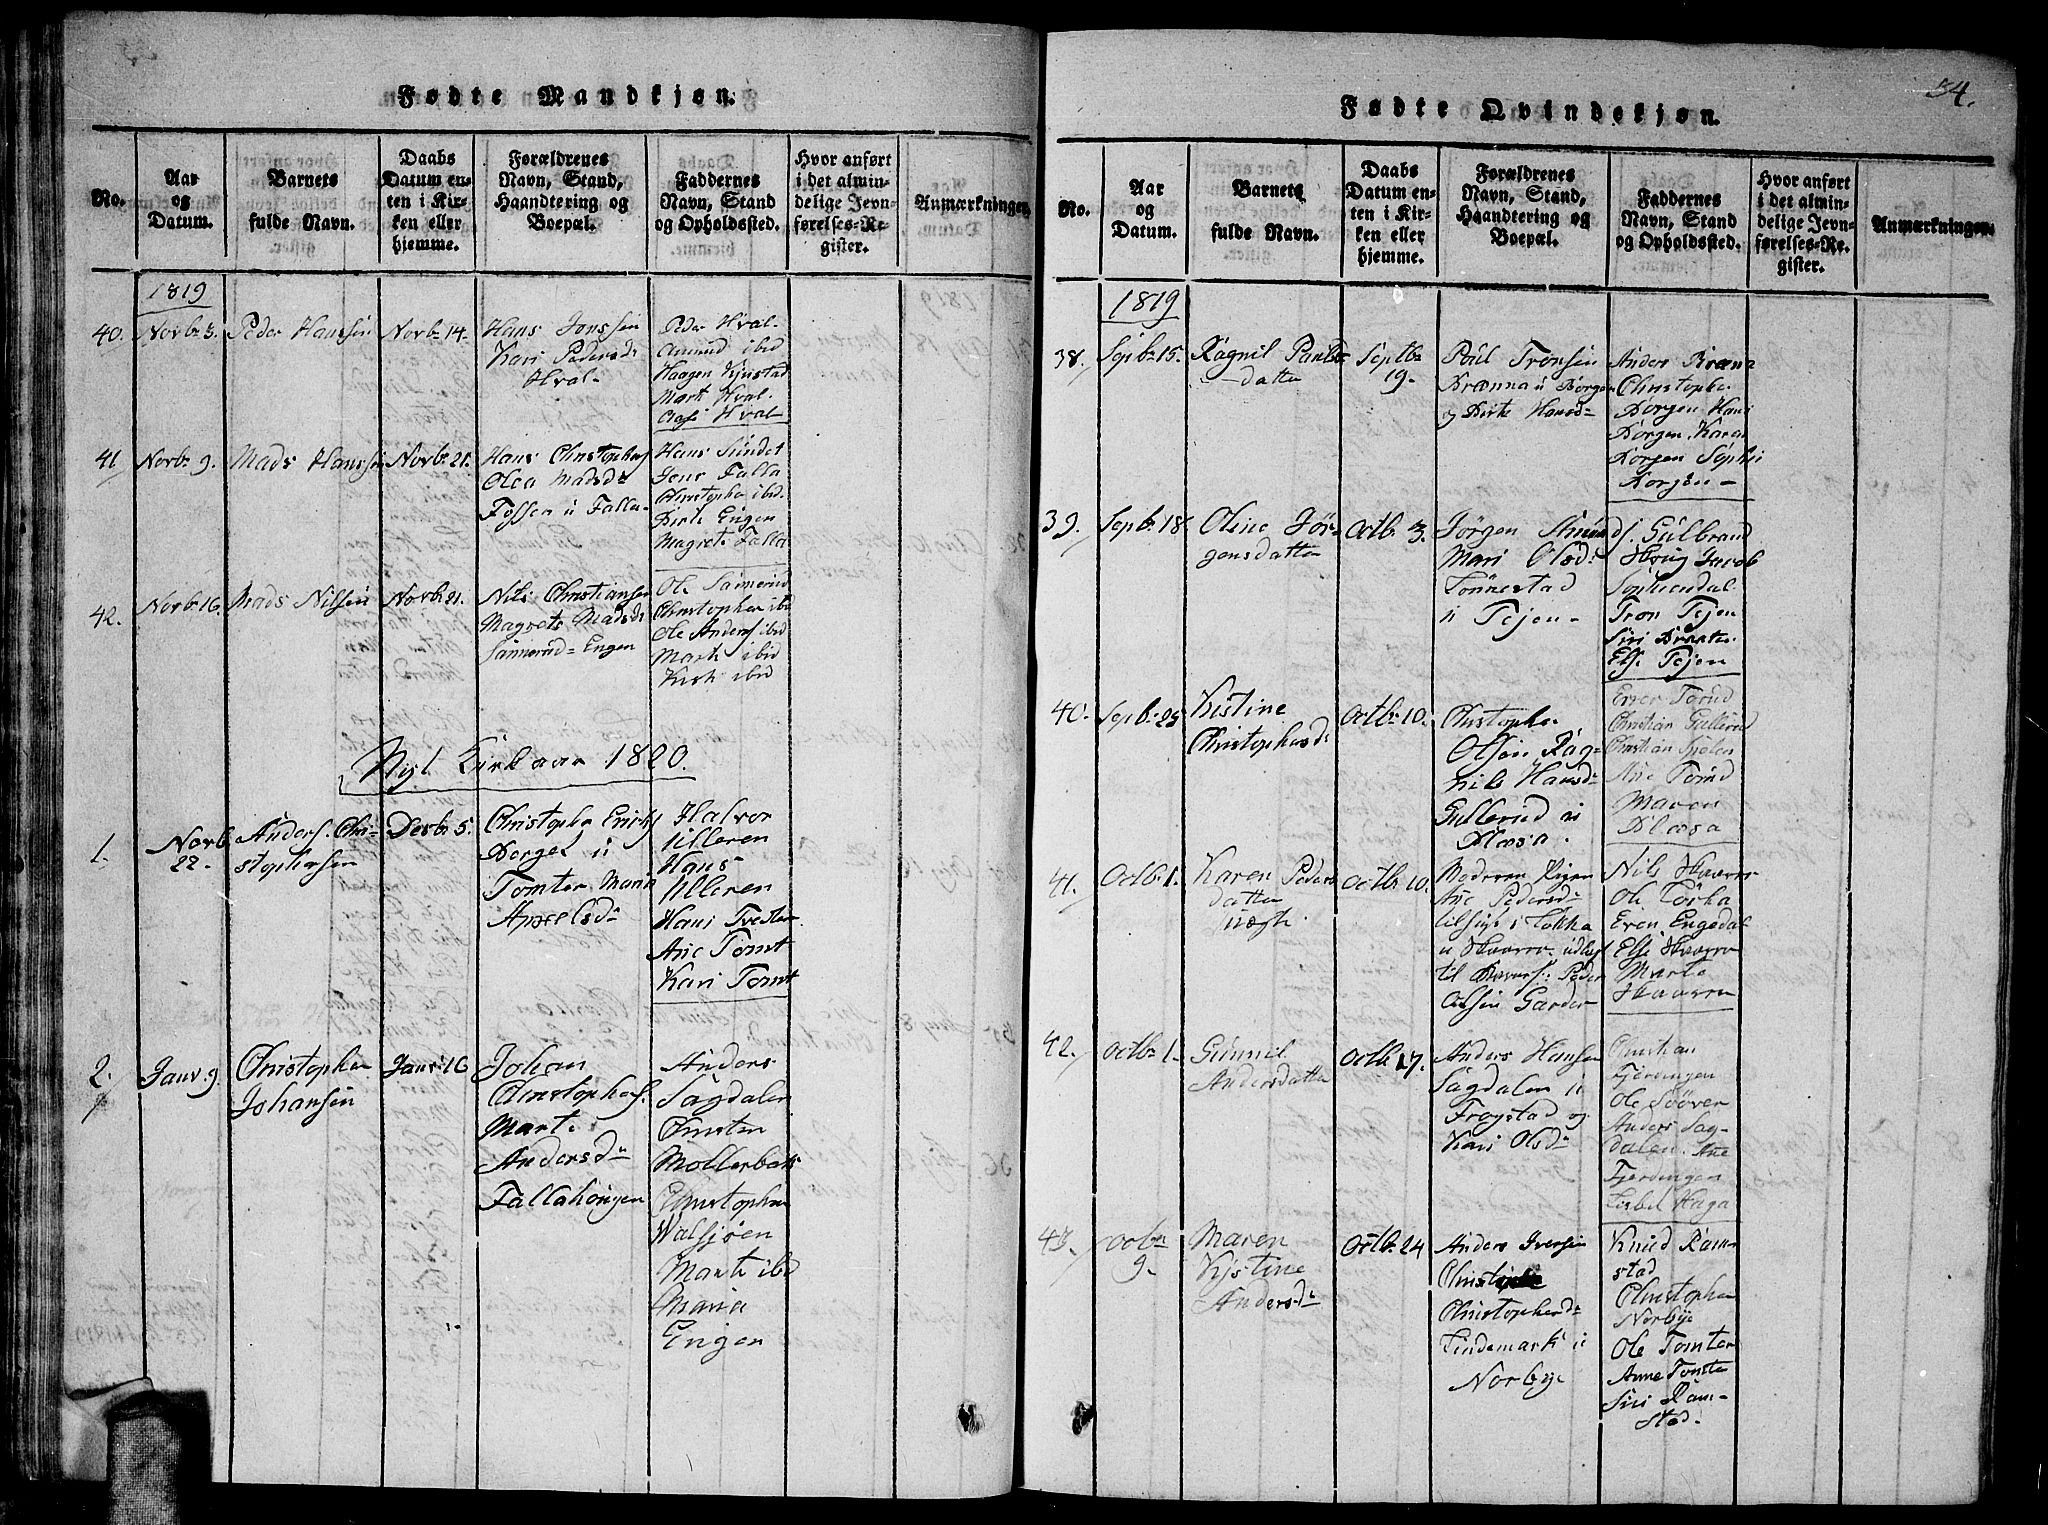 Fødte Mandkjøn.
No.
Aar
og
Datum.
Barnets
fulde Navn.
Daabs
Datum en-
ten i Kir-
ken eller
hjemme.
Forældrenes
Navn, Stand,
Haandtering og
Boepæl.
Faddernes
Navn, Stand
og Opholdssted.
Hvor anført
i det almin-
delige Jevn-
førelses-Re-
gister.
Anmærkninger.
1819
40.
Novbr 3.
Peder Hansen
Novbr 14.
Hans Jonssen
Kari Pedersd
Hval.
Peder Hval.
Amund ibid
Haagen Kjustad
Mart Hval.
Hval
41
Novbr 9.
Mads Hanssen
Novbr 21.
Hans Christophers
Olea Madsd
Fossen u Falla
Hans Sundet
Jens Falla
Christopher ibid.
Birte Engen
Magrete Falla
42.
Novbr 16.
Mads Nilsen
Novbr 21.
Nils Christiansen
Magrete Madsd
Sannerud Engen
Ole Sannerud
Christopher ibid
Ole Anders ibid
Marte ibid
ibid
Nyt Kirkeaar 1820.
1.
Novb
22.
Anders Chri-
stophersen
Decbr 5.
Christopher Erichs
Borgel u
Tomter Maria
Axselsd
Halvor
Ulleren
Hans
Ulleren
Hans Tveter
Ane Tomt
Kari Tomt
2.
Janv. 9
Christopher
Johansen
Janv. 16
Johan
Christophers.
Marte
Andersd
Fallahougen
Anders
Sagdalen
Christen
Møllerbak
Christopher
Walsjøen
Marte ibid
Maria
Engen
34.
Fødte Qvindekjøn.
No.
Aar
og
Datum.
Barnets
fulde Navn.
Daabs
Datum en-
ten i Kir-
ken eller
hjemme.
Forældrenes
Navn, Stand,
Haandtering og
Boepæl.
Faddernes
Navn, Stand
og Opholdssted.
Hvor anført
i det almin-
delige Jevn-
førelses-Re-
gister.
Anmærkninger.
1819
38.
Sepbr 15.
Ragnil Pauls-
datter
Septbr
19.
Poul Tronsen
Brænna u Borgen
og Birte Hansd
Anders Bræna
Christopher
Borgen Hans
Borgen, Karen
Borgen Sophi
Borgen
39.
Sepbr 18.
Oline Jør-
gensdatter
Octbr 3.
Jørgen Amunds.
Mari Olsd
Tønnestad
u Tejen
Gulbrand
Skoug Jacob
Sophiendal
Tron Tejen
Siri Braate
Else Tejen
40.
Sepbr 25
Kistine
Christophersd
Octbr 10.
Christopher
Olsen Rag-
nile Hansd
Gullerud u
Blæsa.
Even Torud
Christian Gullerud
Christian Spolen
Ane Torud
Maren
Blæsa
41.
Octbr 1.
Karen Peders
datter
uægte
Octbr 10.
Moderen Pigen
Ane Pedersd
tilhuus i Tokka
u Skarre. udlagt
til Barnef: Peder
Olsen Garder
Nils Skarre
Ole Torka
Even Engedal
Else Skarre
Marte
Skarren
42.
Octbr 1.
Gunnil
Andersdatter
Octb 17.
Anders Hansen
Sagdalen u
Frogstad og
Kari Olsd
Christian
Fjerdingen
Ole Soover
Anders Sag-
dalen. Ane
Fjerdingen
Lisbet Haga
43.
Octbr
9.
Maren
Kistine
Andersd
Octbr 24
Anders Iversen
Christophersd
Lindemark u
Norbye
Knud Ram-
stad
Christopher
Norbye
Ole Tomter
Anne Tomter
Siri Ram-
stad.